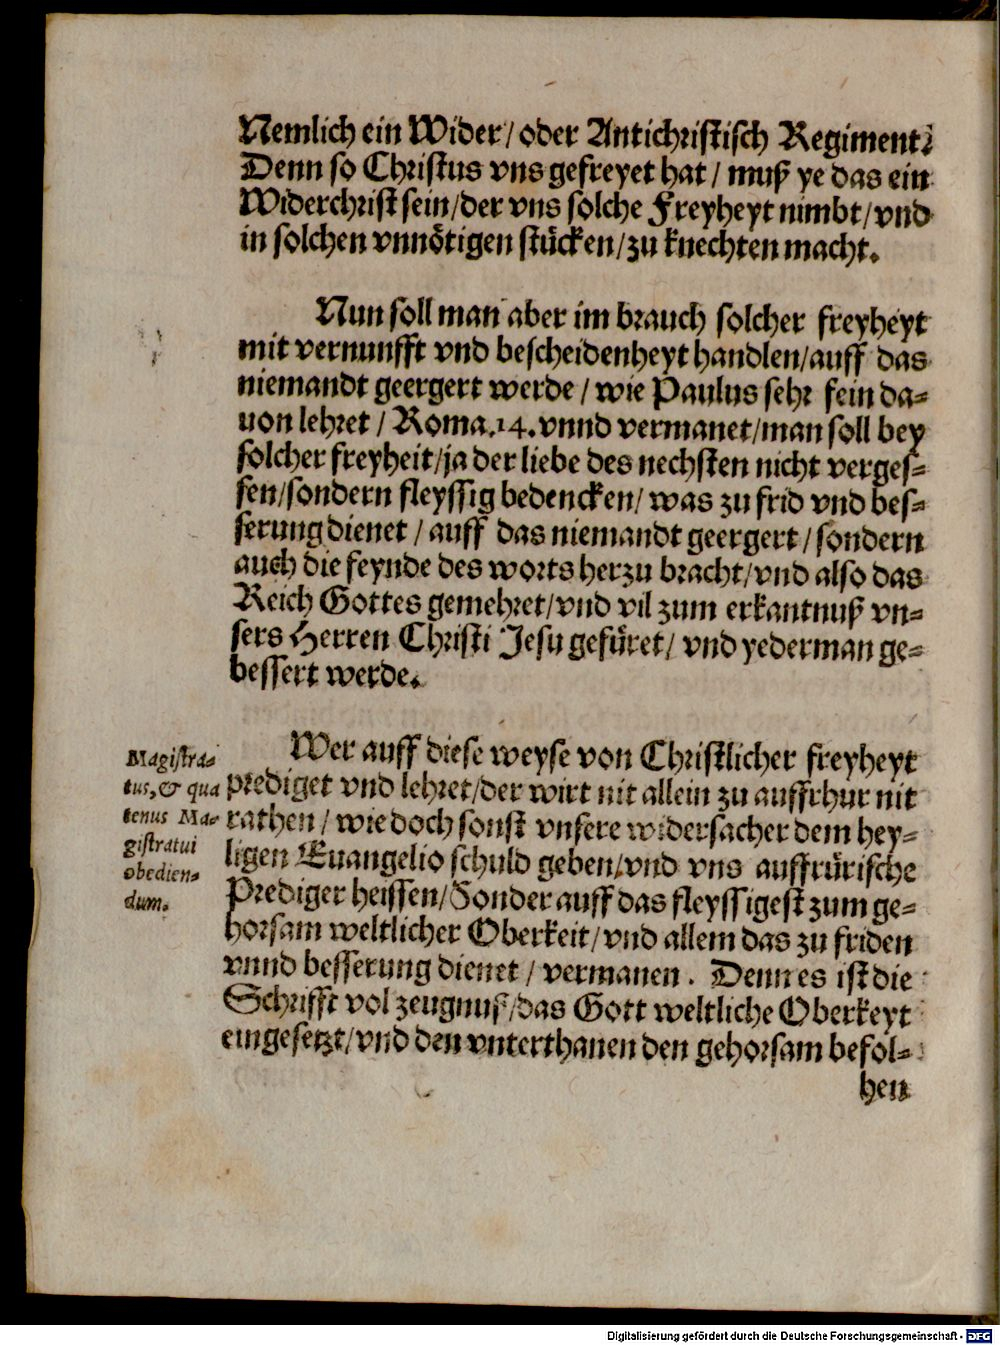 Nemlich ein Wider/ oder Antichristisch Regiment?
Denn so Christus vns gefreyet hat/ muß ye das ein
Widerchrist sein/der vns solche Freyheyt nimbt/vnd
in solchen vnnötigen stücken/zu knechten macht.
Nun soll man aber im brauch solcher freyheyt
mit vernunfft vnd bescheidenheyt handlen/auff das
niemandt geergert werde/ wie Paulus sehr fein da-
uon lehret/ Roma.14.vnnd vermanet/man soll bey
solcher freyheit/ja der liebe des nechsten nicht verges-
sen/sondern fleyssig bedencken/ was zu frid vnd bes-
serung dienet/ auff das niemandt geergert/ sondern
auch die feynde des worts herzu bracht/vnd also das
Reich Gottes gemehret/vnd vil zum erkantnuß vn-
sers Herren Christi Jesu gefüret/ vnd yederman ge-
bessert werde.
Wer auff diese weyse von Christlicher freyheyt
prediget vnd lehret/der wirt nit allein zu auffrhur nit
rathen/ wie doch sonst vnsere widersacher dem hey-
ligen Euangelio schuld geben/vnd vns auffrürische
Prediger heissen/Sonder auff das fleyssigest zum ge-
horsam weltlicher Oberkeit/vnd allem das zu friden
vnnd besserung dienet/ vermanen. Denn es ist die
Schrifft vol zeugnuß/das Gott weltliche Oberkeyt
eingesetzt/vnd den vnterthanen den gehorsam befol-
hen
Magistra-
tus,& qua
tenus Ma-
gistratui
obedien-
dum.
Digitalisierung gefördert durch die Deutsche Forschungsgemeinschaft - DFG